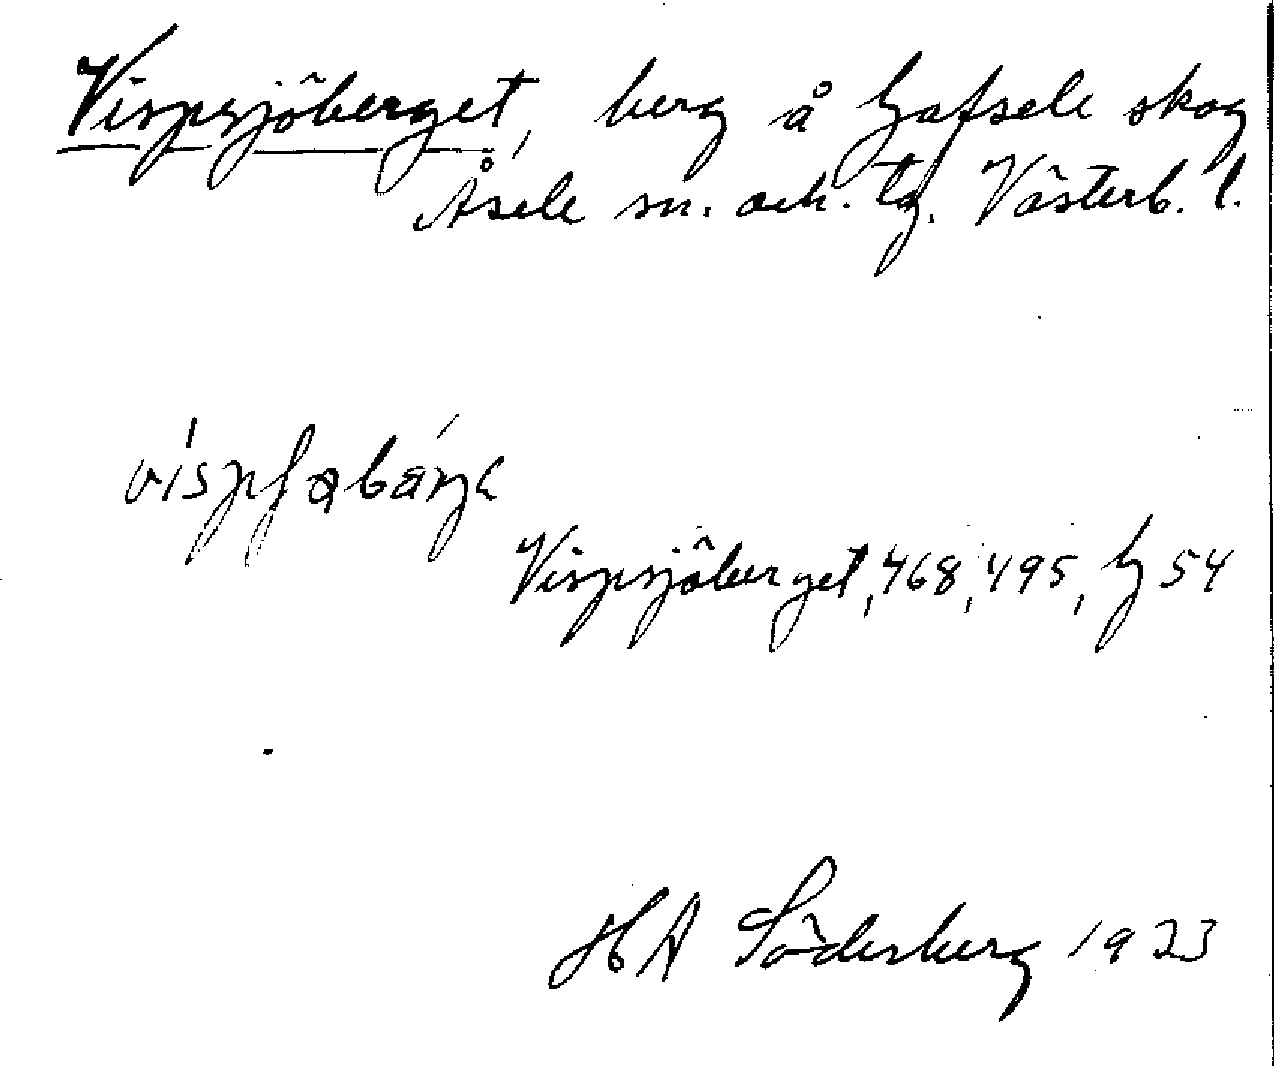 Vispsjöberget, berg å Gafsele skog
Åsele sn. och. lg. Västerb. l.
Vispsjöberget, 468, 495, G 54
HA Söderberg 1923